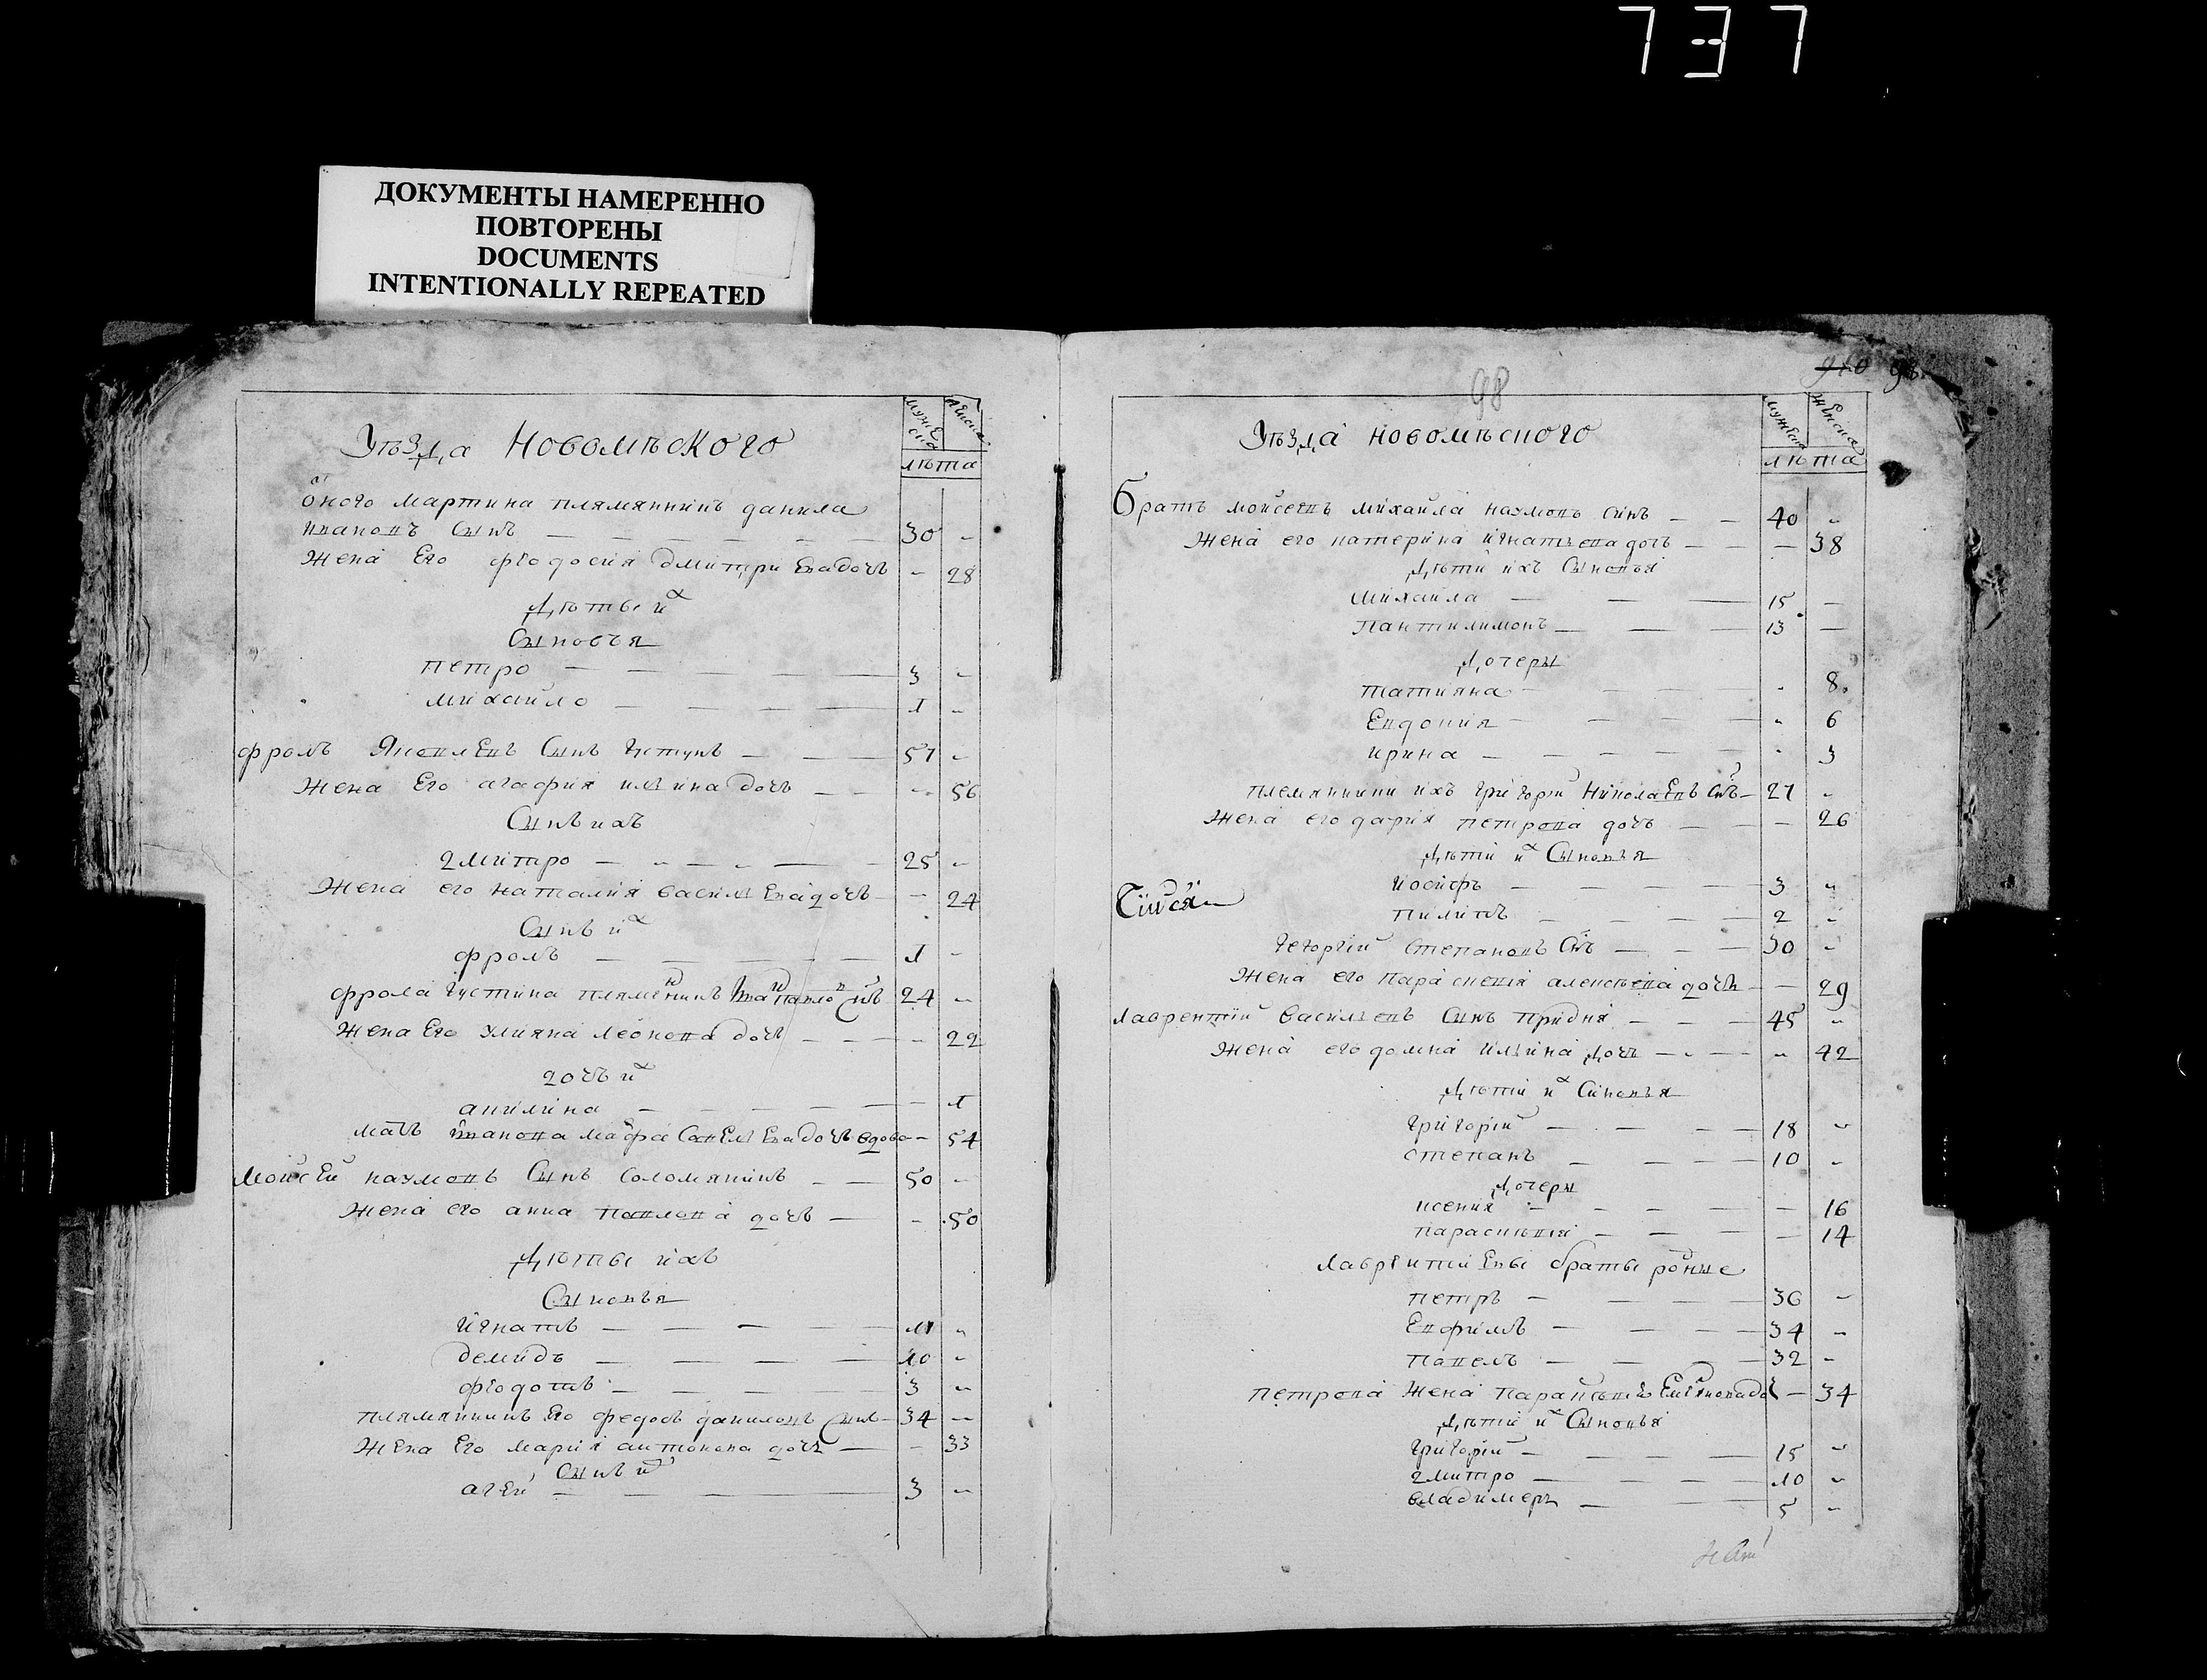 737
ДОКУМЕНТЫ НАМЕРЕННО
ПОВТОРЕНЫ
DOCUMENTS
INTENTIONALLY REPEATED
мужеска женска
Уѣзда Новомѣского
лѣта
оного мартина плямянникъ данила
ивановъ сынъ — 30 —
жена Его феодосия дмитриева дочъ — 28
Дѣты их
Сыновъя
петро — 3 —
михайло — 1 —
фролъ Яковлевъ Сынъ густунъ — 57 —
жена Его агафия илина дочъ — 56
Сынъ ихъ
дмитро — 25 —
Жена его наталия василева дочъ — 24
Сынъ их
фролъ — 1 —
фрола густина пляменникъ павло сынъ 24 —
Жена Его улияна леонова дочъ — 22
дочъ их
ангилина — 1
мать иванова мафра савелева дочъ вдова — 54
Мойсей наумовъ Сынъ соломянинъ — 50 —
жена его анна павлова дочъ — 50
Дѣты ихъ
Сыновъя
игнатъ — 11 —
демидъ — 10 —
феодотъ — 3 —
плямянникъ Его федосъ даниловъ сынъ — 34 —
жена Его мария антонова дочъ — 33
сынъ их
агей — 3 —
98
мужеска женска
Уѣзда новомѣского
лѣта
Братъ мойсеевъ михайла наумовъ синъ — 40 —
жена его катерина игнатьева дочъ — 38
Дѣти ихъ Сыновъя
михаила — 15 —
пантилимонъ — 13 —
Дочеры
татияна — 8
Евдокия — 6
ирина — 3
племянники ихъ григорий николаевъ снъ — 27 —
жена его дария петрова дочъ — 26
Дѣти их Сыновъя
иосифъ — 3 —
пилипъ — 2 —
георгий степановъ снъ — 30 —
жена его параскевия алексѣева дочъ — 29
лаврентий василевъ сынъ придня — 45 —
жена его домна илина дочъ — 42
Дѣти их Синовъя
григорий — 18 —
степанъ — 10 —
Дочеры
ксения — 16
парасковия — 14
лаврентиевы браты родные
петръ — 36 —
Евфимъ — 34 —
павелъ — 32 —
петрова жена — 34
Дѣти их Сыновъя
григорий — 15 —
дмитро — 10 —
владимеръ — 5 —